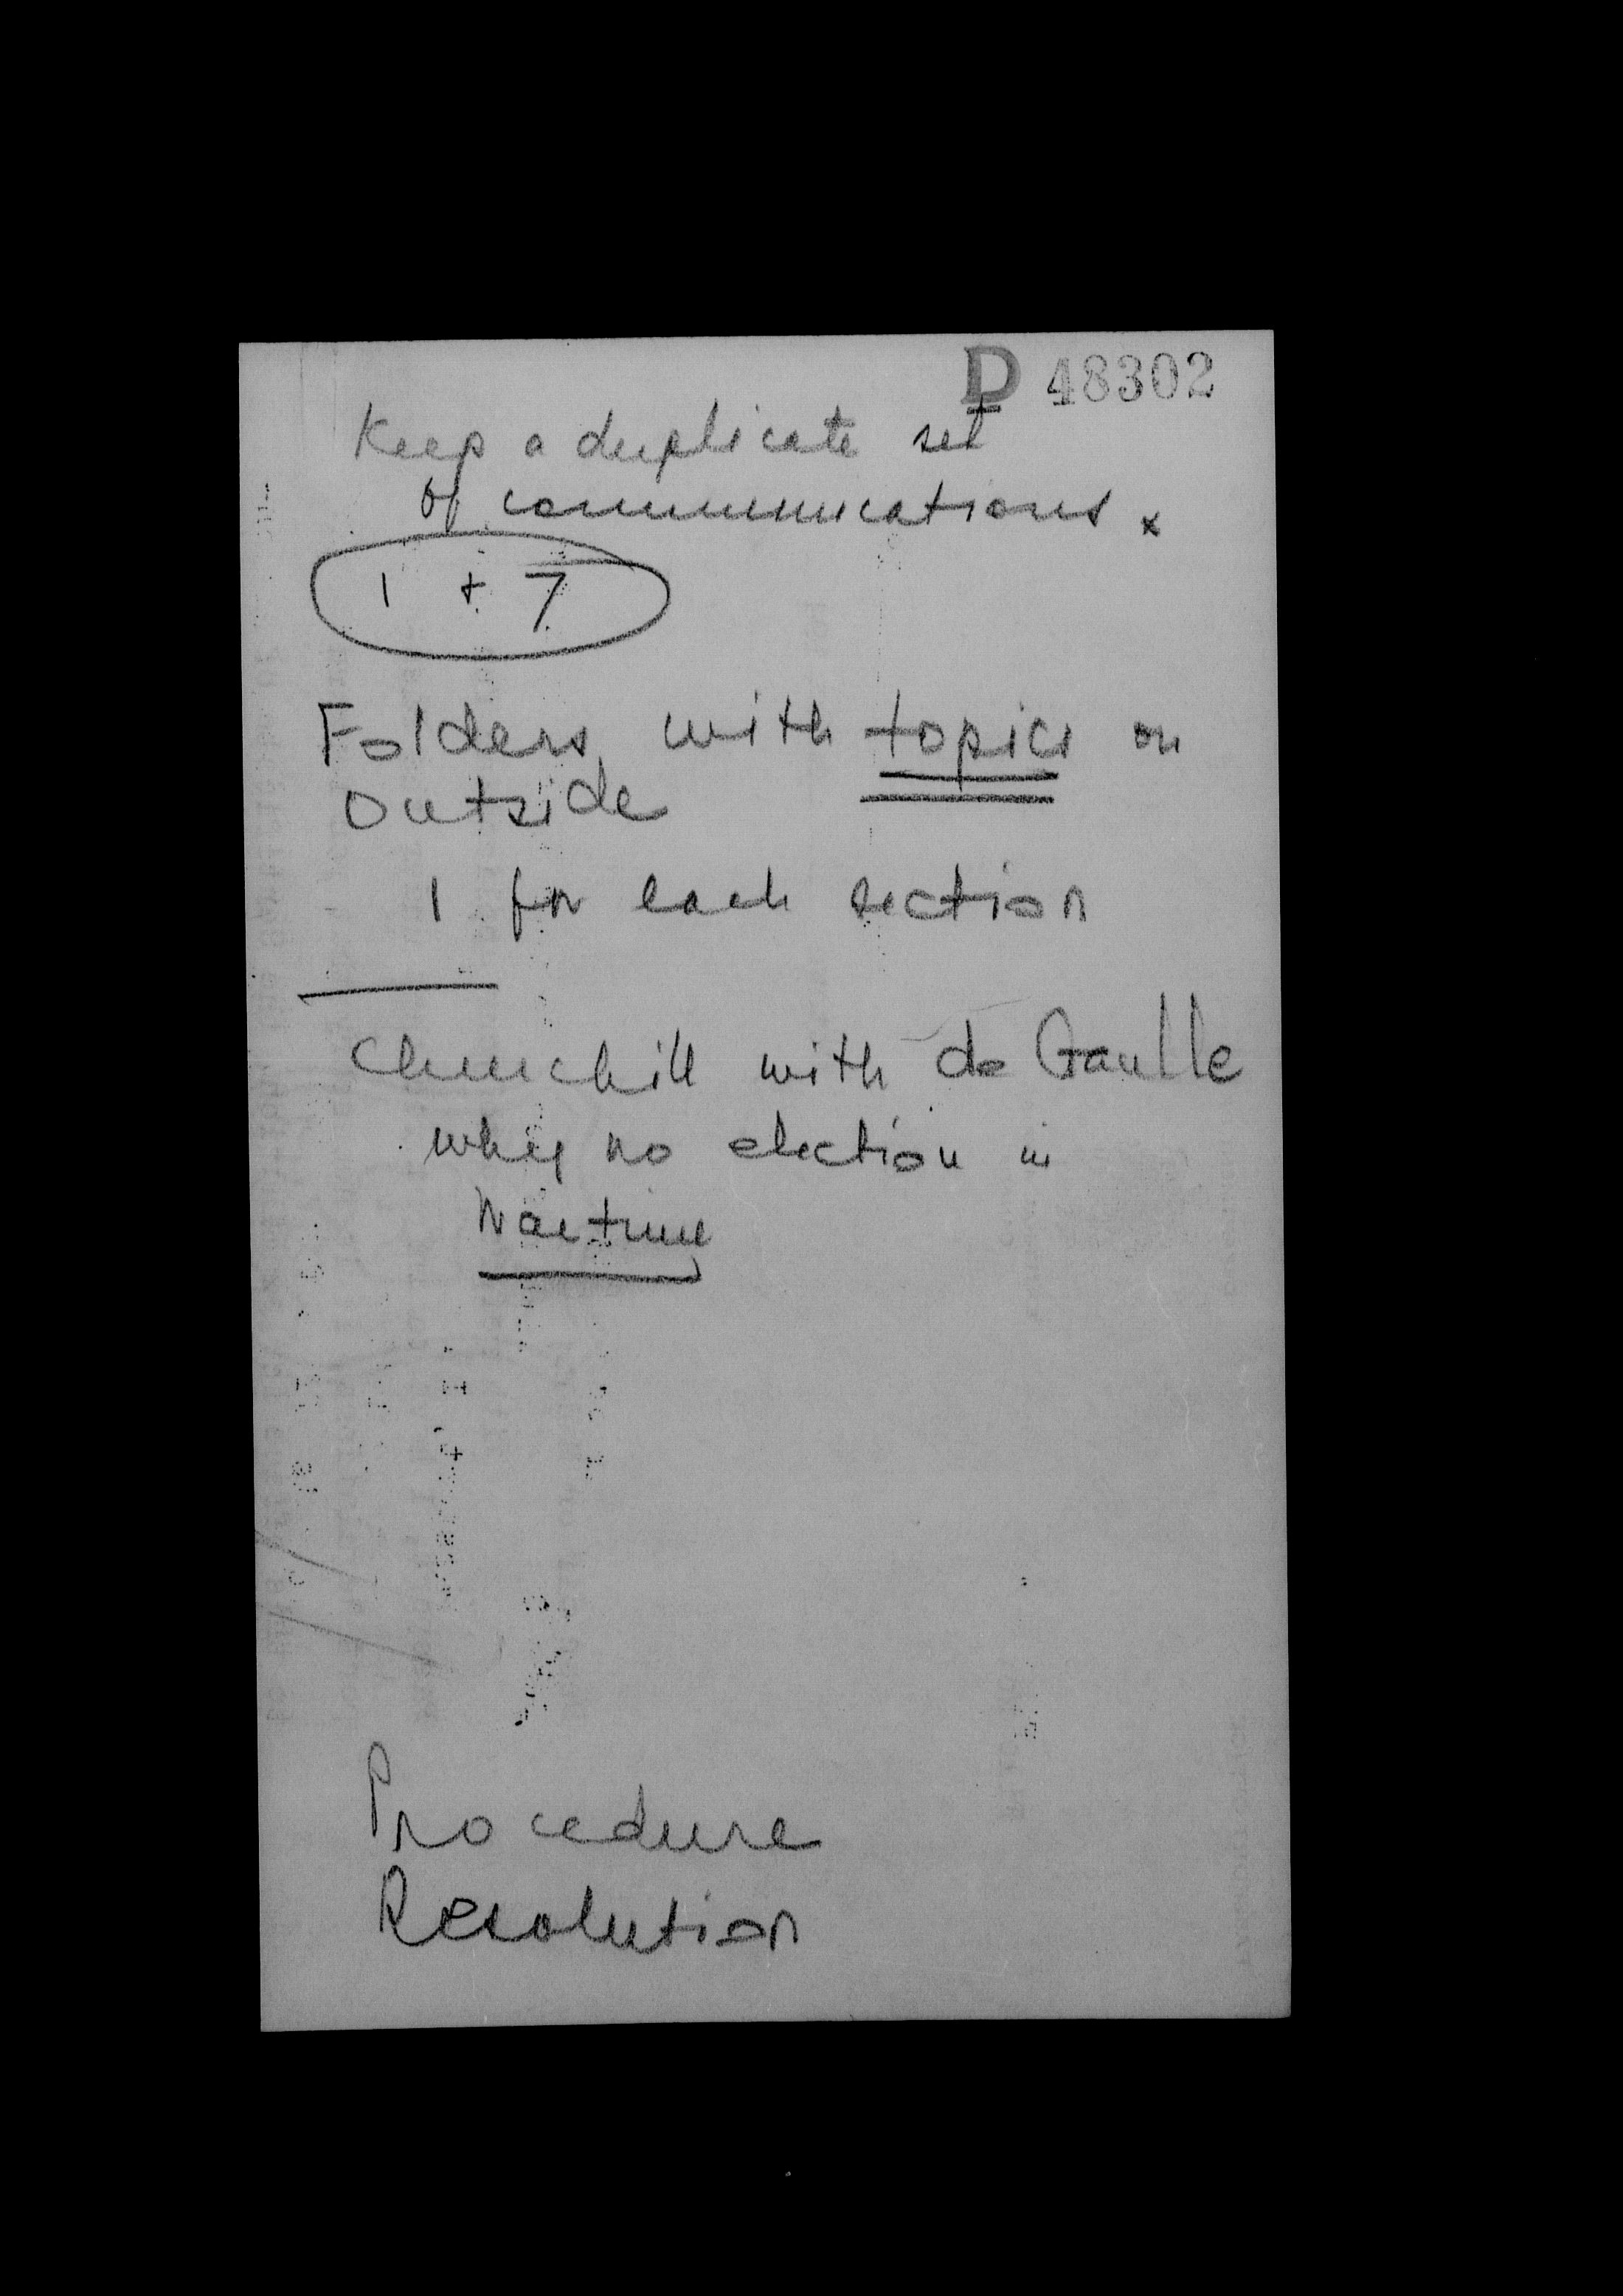 D 48302
Keep a duplicate set
of communications x
1 + 7
Folders with topics on
outside
1 for each section
Churchill with de Gaulle
why no election in
Wartime
Procedure
Resolution